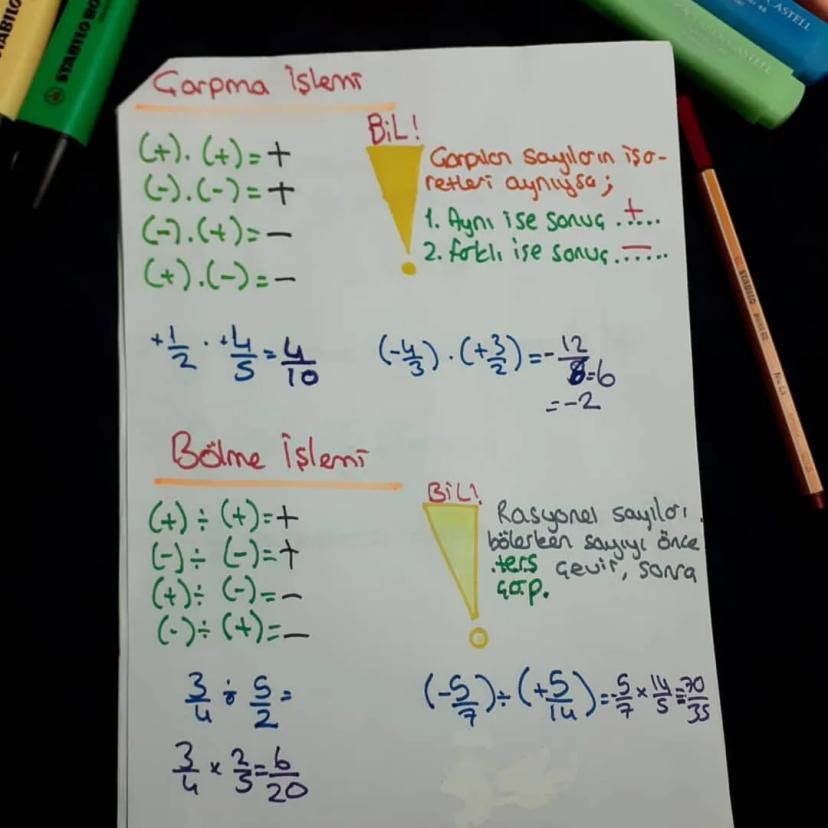 STABILO BO
CASTELL
CASTELL
STABILO
Çarpma İşlemi
(+).(+)=+
(-).(-)=+
(-).(+)=-
(+).(-)=-
BİL!
Çarpılan sayıların işa-
retleri aynıysa;
1. Aynı ise sonuç .+....
2. farklı ise sonuç .-....
+1/2 . +4/5 = 4/10
(-4/3) . (+3/2) = -12/6=6
=-2
Bölme İşlemi
(+) ÷ (+)=+
(-) ÷ (-)=+
(+) ÷ (-)=-
(-) ÷ (+)=-
BİL!
Rasyonel sayıları
bölerken sayıyı önce
ters çevir, sonra
çarp.
3/4 ÷ 5/2 =
3/4 x 2/5 = 6/20
(-5/7) ÷ (+5/14) = -5/7 x 14/5 = 70/35